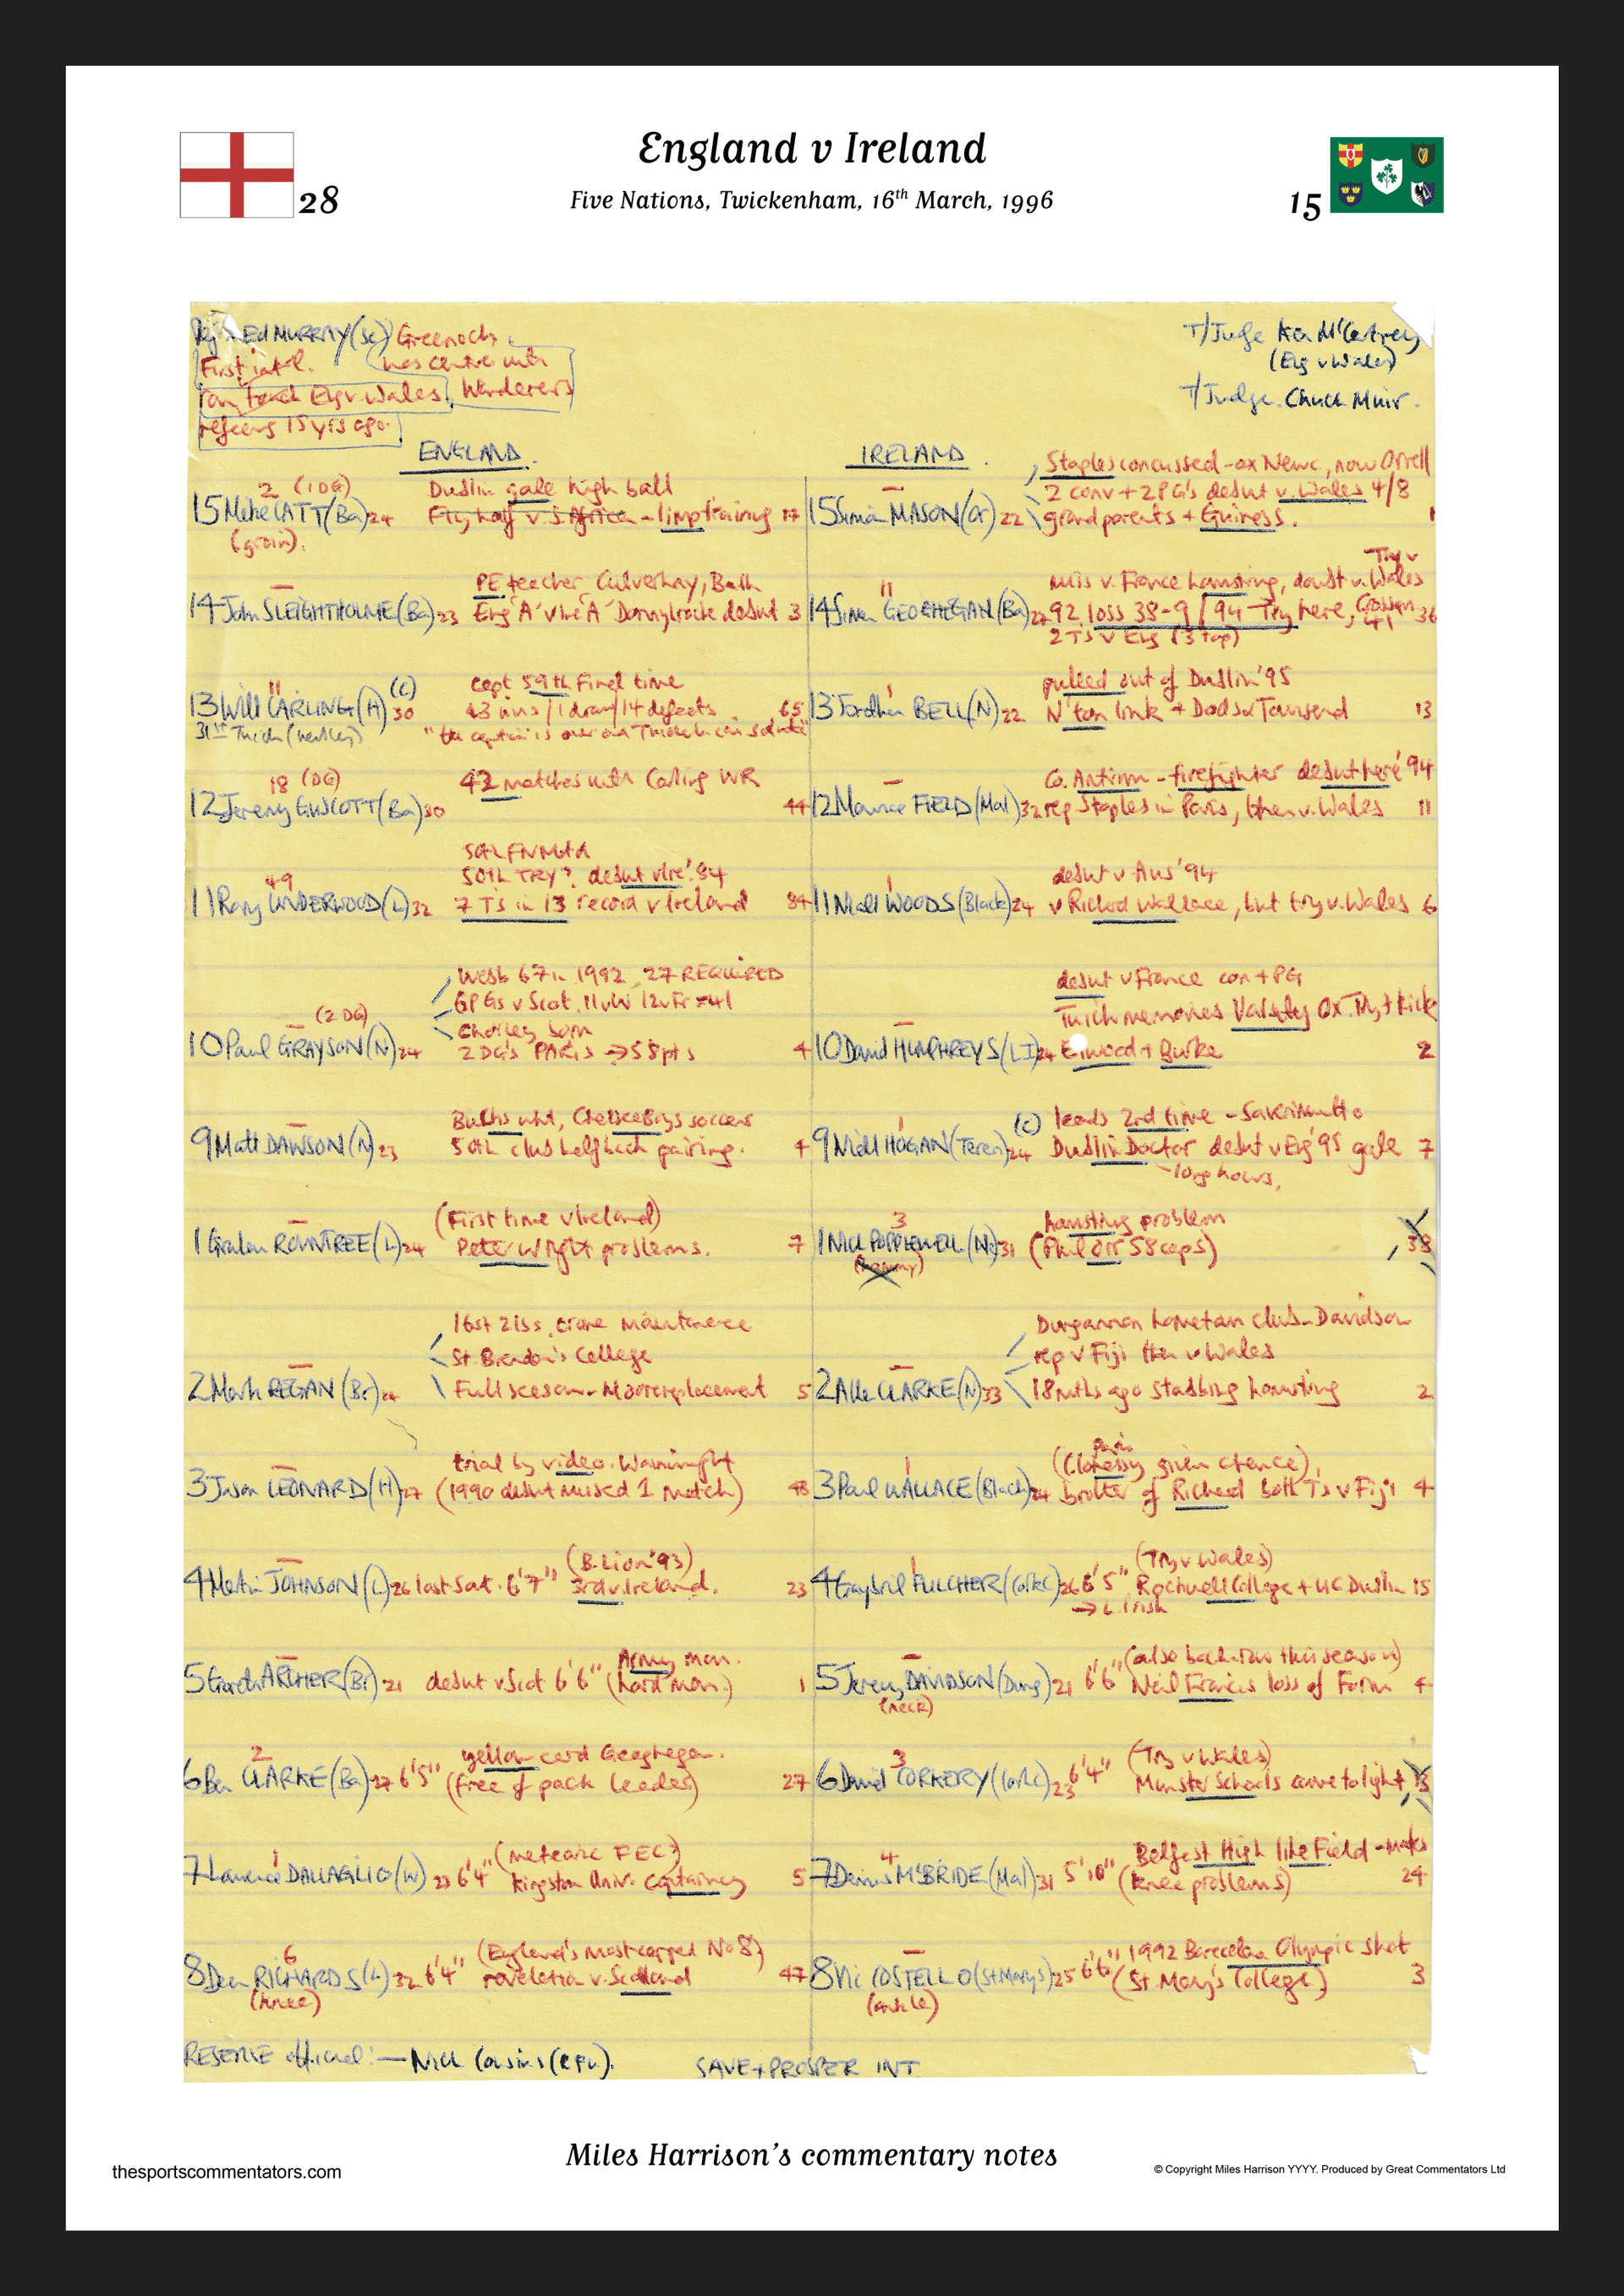 England v Ireland
Five Nations, Twickenham, 16th March, 1996
28
15
Ref:- Ed MURRAY (Sc) Greenock
First int'l. was centre with
ran touch Eng v Wales, Wanderers
refereeing 15 yrs ago.
T/Judge Ken McCartney
(Eng v Wales)
T/Judge. Chuck Muir.
ENGLAND.
IRELAND.
2 (1DG) Dublin gale high ball
15 Mike CATT (Ba) 24 Fly half v. S. Africa - limp training 17
(groin).
PE teacher Culverhay, Bath
14 John SLEIGHTHOLME (Ba) 23 Eng 'A' v Ire 'A' Donnybrook debut 3
11 (C) capt 59th Final time
13 Will CARLING (H) 30 43 wins / 1 draw / 14 defeats 65
31st Twick
18 (DG) 42 matches with Carling WR
12 Jeremy GUSCOTT (Ba) 30 44
50th FN Match
49 50th TRY? debut v Ire '84
11 Rory UNDERWOOD (L) 32 7 Ts in 13 record v Ireland 84
Webb 67 in 1992, 27 REQUIRED
6PGs v Scot. 11 v W 12 v Fr = 41
(2DG) Chorley born
10 Paul GRAYSON (N) 24 2 DG's PARIS → 58pts 4
Bucks wht, Chelsea Boys soccer
9 Matt DAWSON (N) 23 50th club halfback pairing. 4
(First time v Ireland)
1 Graham ROWNTREE (L) 24 Peter Wright problems. 7
16st 2lbs. crane maintenance
St. Brendan's College
2 Mark REGAN (Br) 24 Full season - Moore replacement 5
trial by video. Wainwright
3 Jason LEONARD (H) 27 (1990 debut missed 1 match) 48
(B. Lion '93)
4 Martin JOHNSON (L) 26 last Sat. 6'7" 3rd v Ireland. 23
Army man.
5 Garath ARCHER (Br) 21 debut v Scot 6'6" (hard man.) 1
2 yellow card Geoghegan.
6 Ben CLARKE (Ba) 27 6'5" (free of pack leader) 27
1 (meteoric
7 Lawrence DALLAGLIO (W) 23 6'4" Kingston Univ. captaincy 5
6 (England's most capped No 8)
8 Dean RICHARDS (L) 32 6'4" revelation v. Scotland 47
(knee)
Staples concussed - ex Newc, now Orrell
2 conv + 2PG's debut v. Wales 4/8
15 Simon MASON (Or) 22 grandparents + Guiness. 1
Try v
11 miss v. France hamstring, doubt v. Wales
14 Simon GEOGHEGAN (Ba) 27 92 loss 38-9 / 94 Try here, 36
2 Ts v Eng (3 top)
1 pulled out of Dublin '95
13 Jonathan BELL (N) 22 N'ton link + Dods + Townsend 13
Co. Antrim - firefighter debut here '94
12 Maurice FIELD (Mal) 32 rep Staples in Paris, then v. Wales 11
1 debut v Aus '94
11 Niall WOODS (Black) 24 v Richard Wallace, but try v. Wales 6
debut v France con + PG
Twick memories Varsity Ox. Try + kick
10 David HUMPHREYS (LI) 24 Elwood + Burke 2
1 (C) leads 2nd time - Sacramento
9 Niall HOGAN (Teren) 24 Dublin Doctor debut v Eng '95 gale 7
long hours.
3 hamstring problem
1 Nick POPPLEWELL (N) 31 (Phil Orr 58 caps) 38
(hammy)
Dungannon hometown club - Davidson
rep v Fiji then v Wales
2 Allen CLARKE (N) 33 18 mths ago stabbing hamstring 2
Paris
1 (Clohessy given chance)
3 Paul WALLACE (Black) 24 brother of Richard both Ts v Fiji 4
1 (Try v Wales)
4 Gabriel FULCHER (Cork C) 26 6'5" Rockwell College + UC Dublin 15
→ L. Irish
(also back-row this season)
5 Jeremy DAVIDSON (Dung) 21 6'6" Neil Francis loss of Form 4
(neck)
3 (Try v Wales)
6 David CORKERY (Cork C) 23 6'4" Munster Schools came to light 13
4 Belfast High like Field - mates
7 Denis McBRIDE (Mal) 31 5'10" (knee problems) 24
1992 Barcelona Olympic shot
8 Vic COSTELLO (St Marys) 25 6'6" (St. Mary's College) 3
(ankle)
RESERVE official:- Nick Cousins (RFU).
SAVE + PROSPER INT.
Miles Harrison's commentary notes
thesportscommentators.com
© Copyright Miles Harrison YYYY. Produced by Great Commentators Ltd